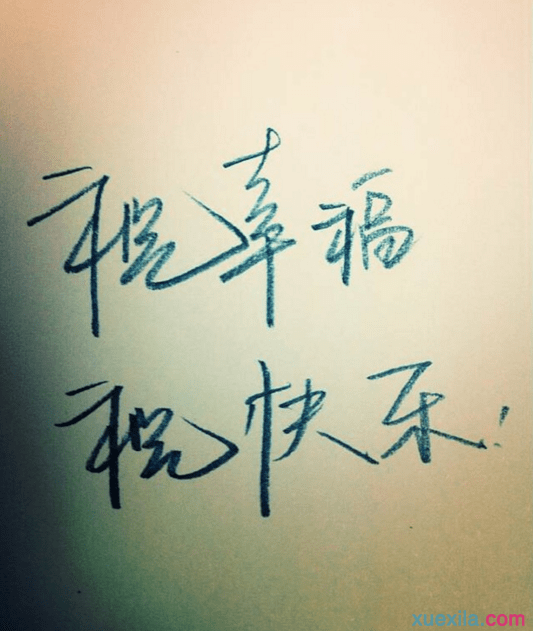 祝幸福
祝快乐!
xuexila.com